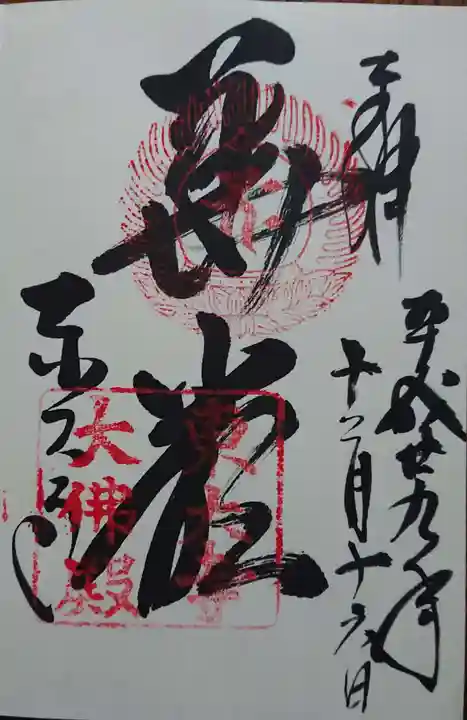 奉拝
平成廿九年
十二月十六日
華嚴
東大寺
東大寺
大佛殿